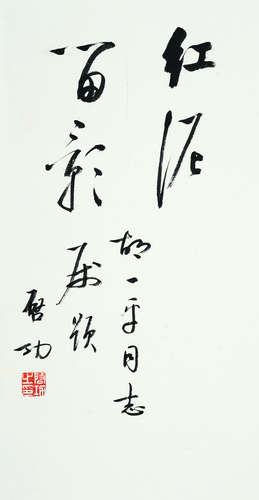 红泥
留影
胡一平同志
属题
启功